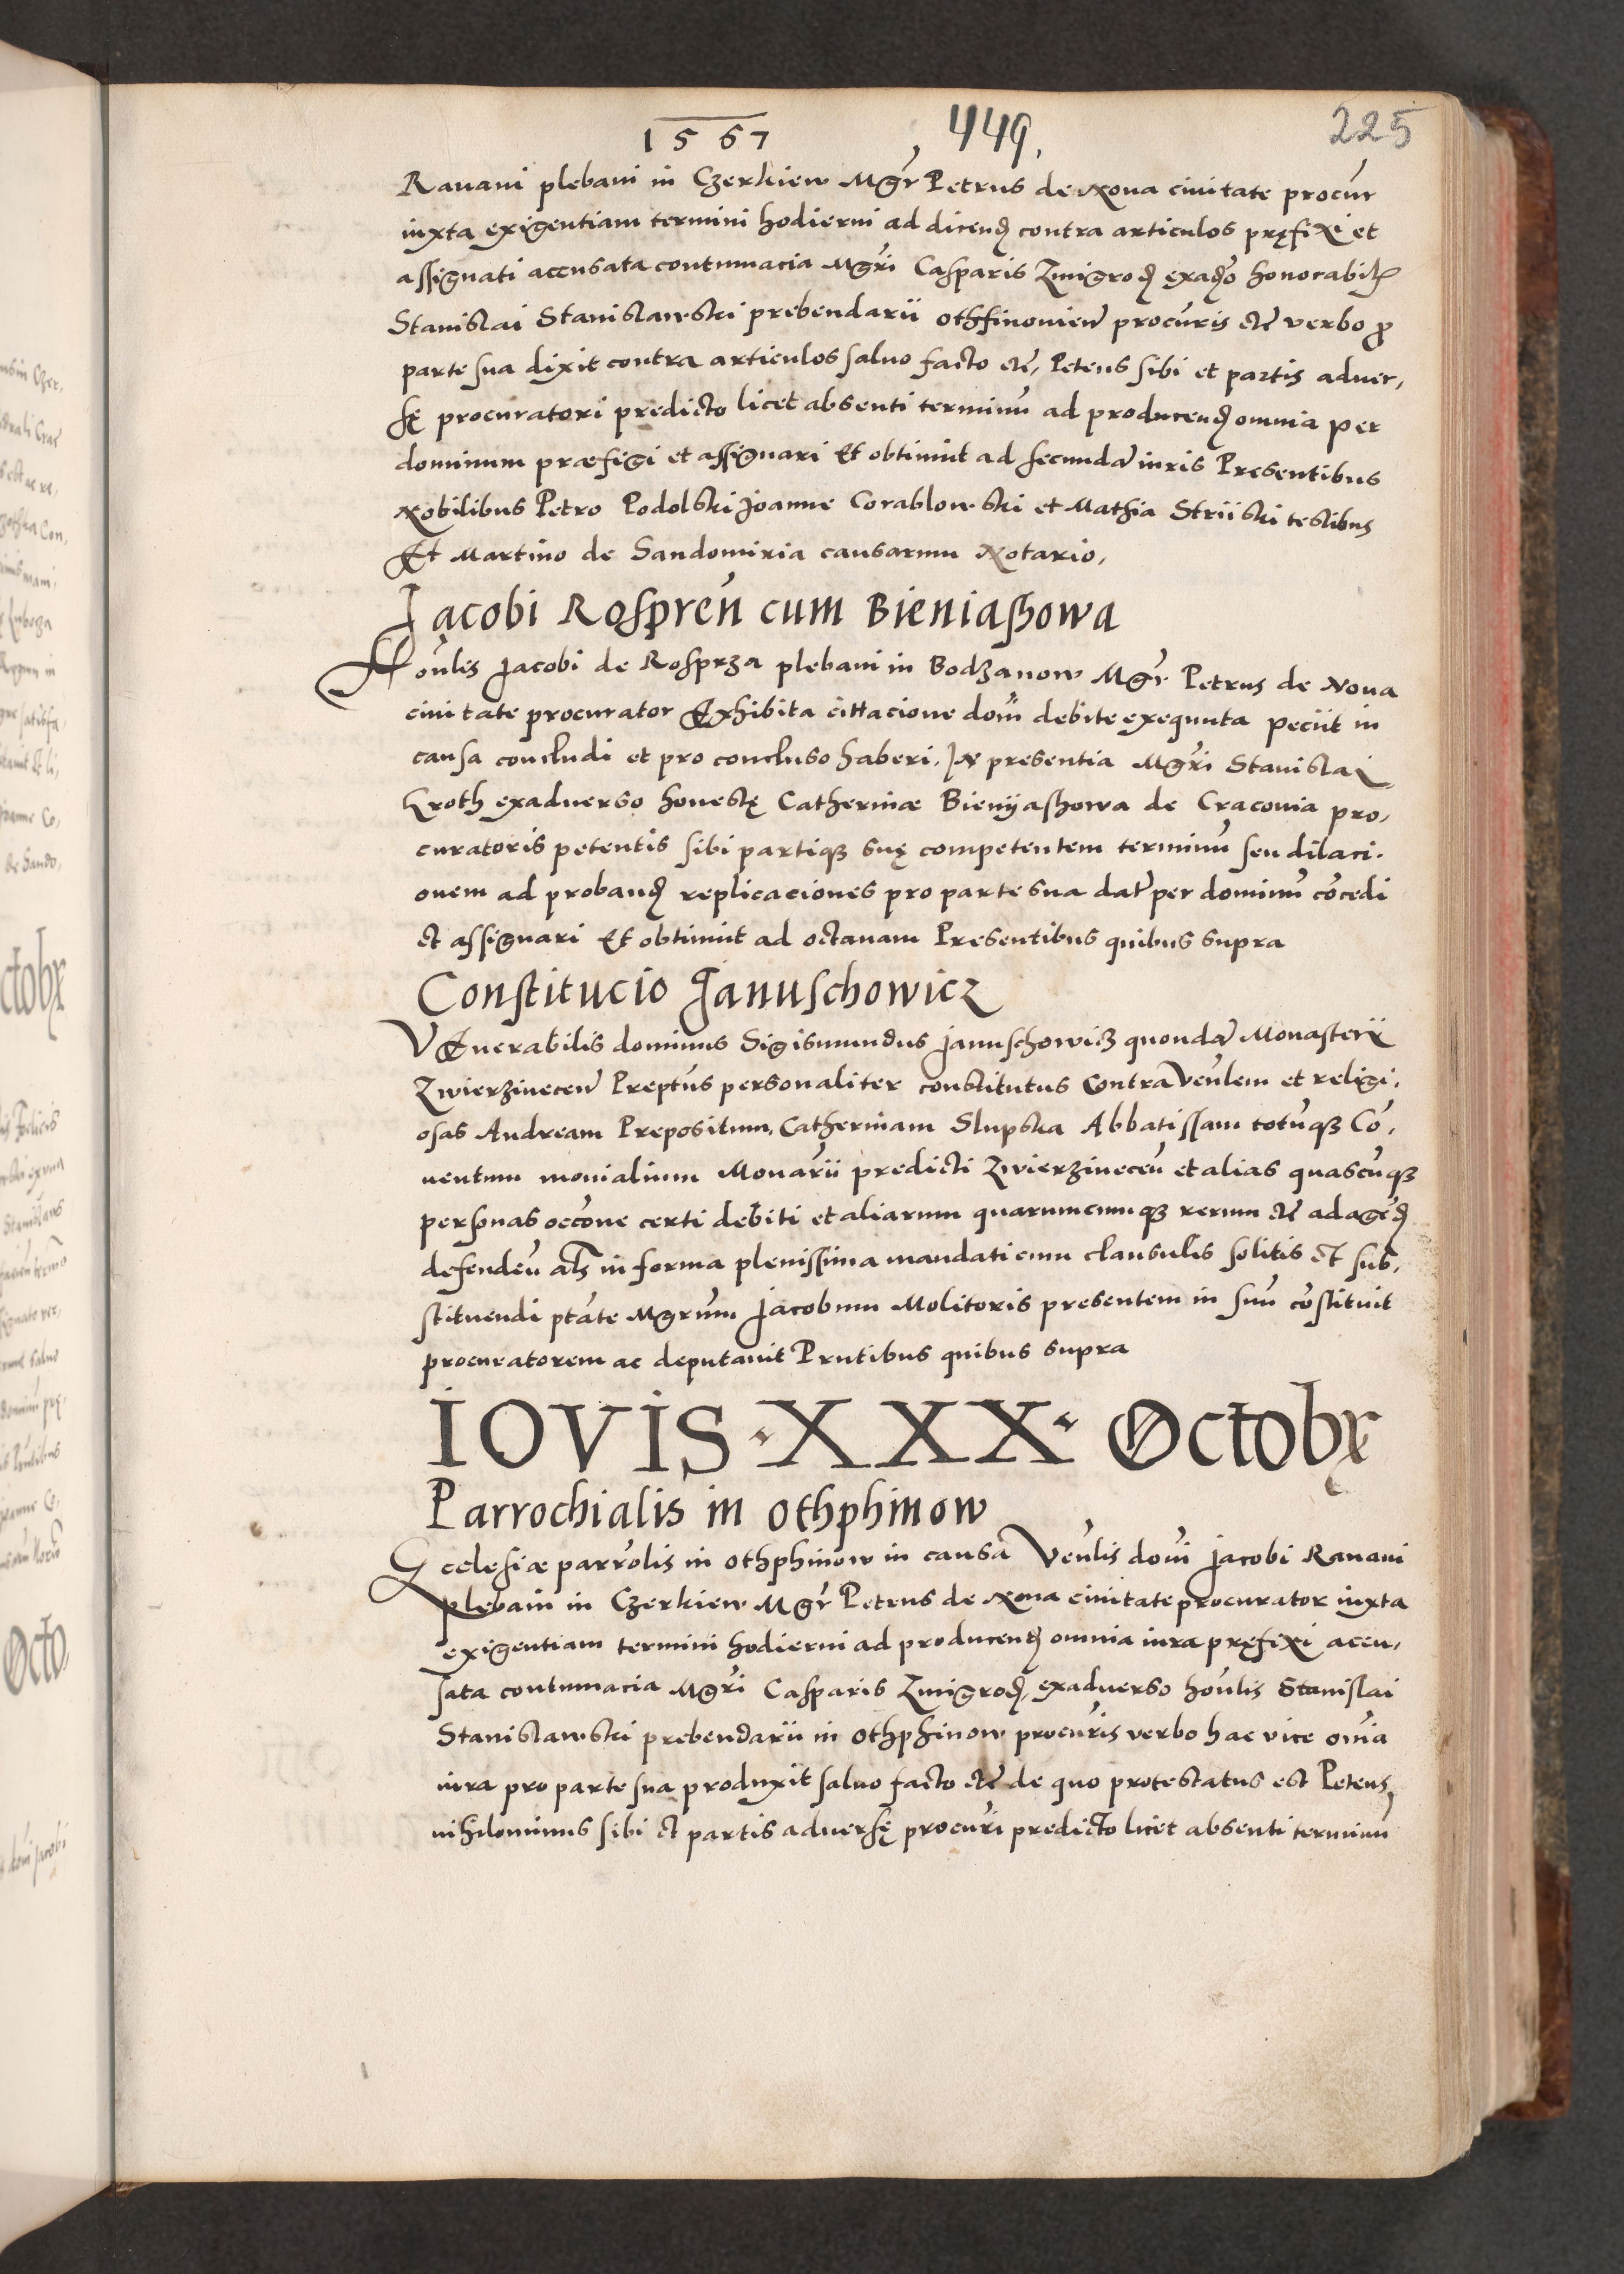 1567 449. 225
Ravani plebani in Czerkiew Mgr̄ Petrus de Nova civitate procur̄
iuxta exigentiam termini hodierni ad dicend̄ contra articulos pręfixi et
assignati accusata contumacia Mgr̄i Casparis Zmigrod̄ exad̄o honorabil̄
Stanislai Stanislawski prebendarii othffinovien̄ procur̄is etc̄ verbo ꝓ
parte sua dixit contra articulos salvo facto etc̄, Petens sibi et partis adver,
sę procuratori predicto licet absenti terminū ad producend̄ omnia per
dominum præfigi et assignari Et obtinuit ad secundā iuris Presentibus
Nobilibus Petro Podolski Joanne Corablowski et Mathia Striiski testibus
Et Martino de Sandomiria causarum Notario,
Jacobi Rospren̄ cum Bieniashowa
Hon̄lis Jacobi de Rosprza plebani in Bodzanow Mgr̄ Petrus de Nova
civitate procurator Exhibita cittacione dom̄ debite exequuta peciit in
causa concludi et pro concluso haberi, In presentia Mgr̄i Stanislai
Kroth exadverso honestę Catherinæ Bienyashowa de Cracovia pro,
curatoris petentis sibi partiqꝫ suę competentem terminū seu dilaci,
onem ad proband̄ replicaciones pro parte sua dat̄ per dominū cōcedi
et assignari Et obtinuit ad octavam Presentibus quibus supra
Constitucio Januschowicz
VEnerabilis dominus Sigismundus Januschowicz quondā Monasterii
Zwierzinecen̄ Prept̄us personaliter constitutus Contra Ven̄lem et religi,
osas Andream Prepositum, Catherinam Slupska Abbatissam totūqꝫ Cō,
ventum monialium Monar̄ii predicti Zwierzinecen̄ et alias quascūqꝫ
personas occōne certi debiti et aliarum quarumcumqꝫ rerum etc̄ ad agēd̄
defenden̄ al̄s in forma plenissima mandati cum clausulis solitis et sub,
stituendi ptāte Mgr̄um Jacobum Molitoris presentem in suū cōstituit
procuratorem ac deputavit Prn̄tibus quibus supra
IOVIS · XXX · Octobr
Parrochialis in othphinow
Ecclesiæ parrōlis in othphinow in causa Ven̄lis dom̄i Jacobi Ravani
plebani in Czerkiew Mgr̄ Petrus de Nova civitate procurator iuxta
exigentiam termini hodierni ad producend̄ omnia iura pręfixi accu,
sata contumacia Mgr̄i Casparis Zmigrod̄, exadverso hon̄lis Stanislai
Stanislawski prebendarii in othphinow procur̄is verbo hac vice om̄ia
iura pro parte sua produxit salvo facto etc̄ de quo protestatus est Petens
nihilominus sibi et partis adversę procur̄i predicto licet absenti terminū